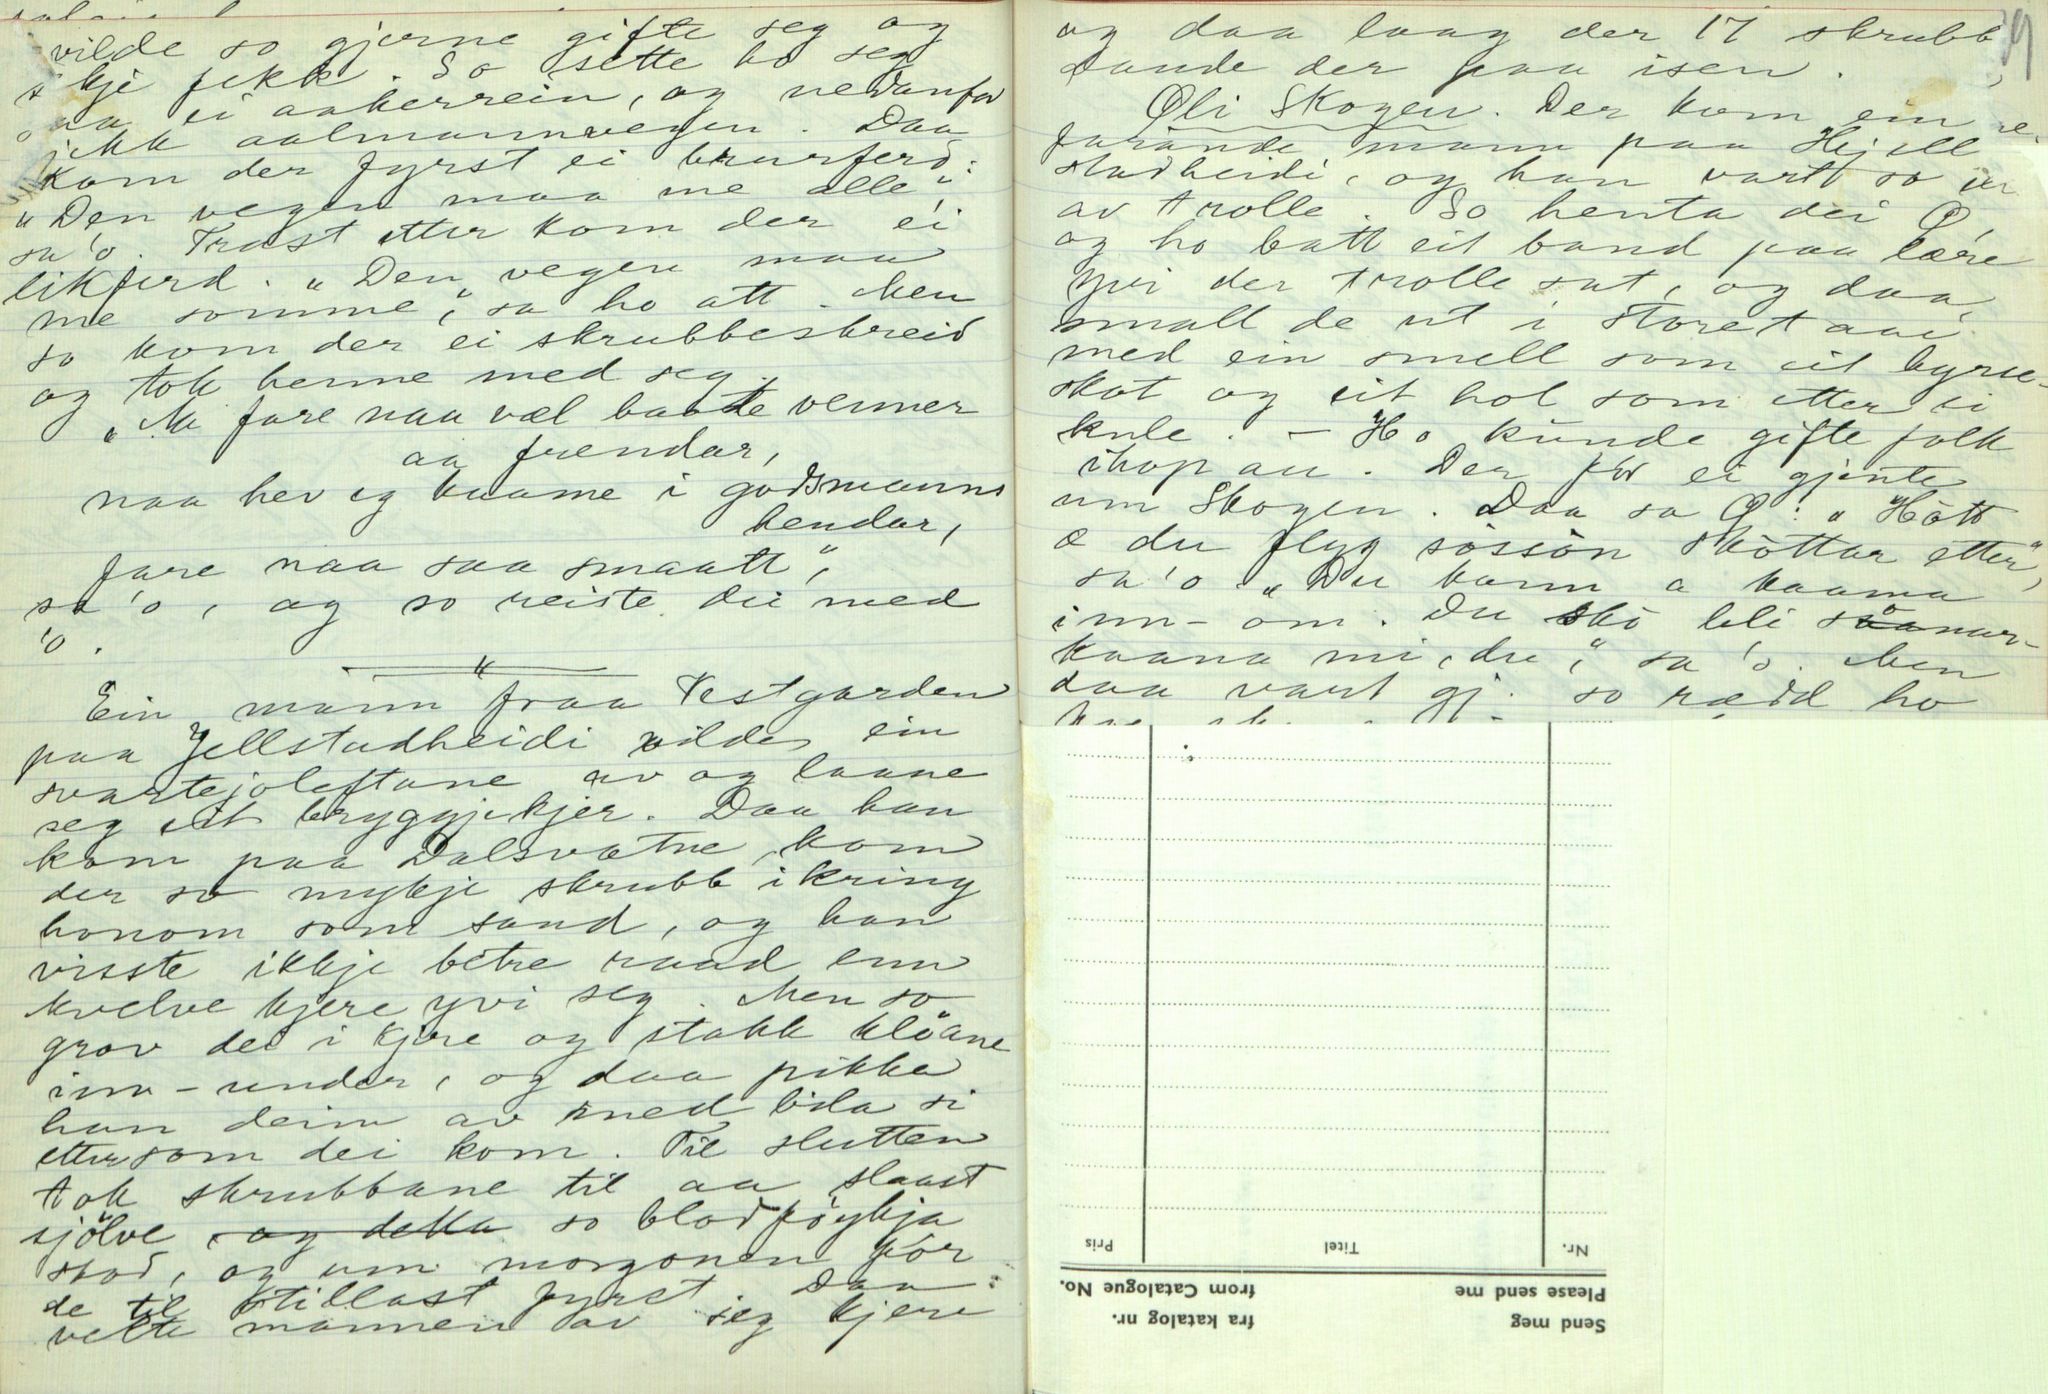 vilde so gjerne gifte seg og
ikkje fekk. So sette ho seg
paa ei aakerrein, og nedanfor
gjekk aalmannvegen. Daa
kom der fyrst ei brurferd:
"Den vegen maa me alle",
sa'o. Trast etter kom der ei
likferd. "Den vegen maa
me somme," sa ho att. Men
so kom der ei skrubbeskreid
og tok henne med seg.
"Me fare naa væl baade venner
aa frendar,
naa hev eg kaame i godsmanns
hendar,
fare naa saa smaatt",
sa'o, og so reiste dei med
'o.
Ein mann fraa Vestgarden
paa Jellstadheidi vilde ein
svartejoleftane av og laane
seg eit bryggjekjer. Daa han
kom paa Dalsvatne, kom
der so mykje skrubb ikring
honom som sand, og han
visste ikkje betre raad enn
kvelve kjere yvi seg. Men so
grov dei i kjere og stakk klöane
inn-under, og daa pikka
han deim av med bila si
ettersom dei kom. Til slutten
tok skrubbane til aa slaast
sjölve, og detta so blodföykja
stod, og um morgonen vor
de til stillast fyrst. Daa
velte mannen av seg kjere
og daa laag der 17 skrubb
daude der paa isen.
Øli Skogen. Der kom ein
farande mann paa Hjell
stadheidi, og han vart so
av trolle. So henta dei Ø,
og ho batt eit band paa lære
yvi der trolle sat, og daa
small de ut i storetaai
med ein smell som eit byrse-
skot og eit hol som etter ei
kule. – Ho kunde gifte folk
ihop au. Der for ei gjente
um Skogen. Daa sa Ø: "Hött
æ du flyg sössön sköttar etter",
sa'o. "Du kann a kaama
inn-om. Du skö bli sonar-
kaana mi, du," sa 'o. Men
daa vart gj. so rædd ho
Pris
Titel
Nr.
from Catalogue No.
Please send me
fra katalog nr.
Send meg